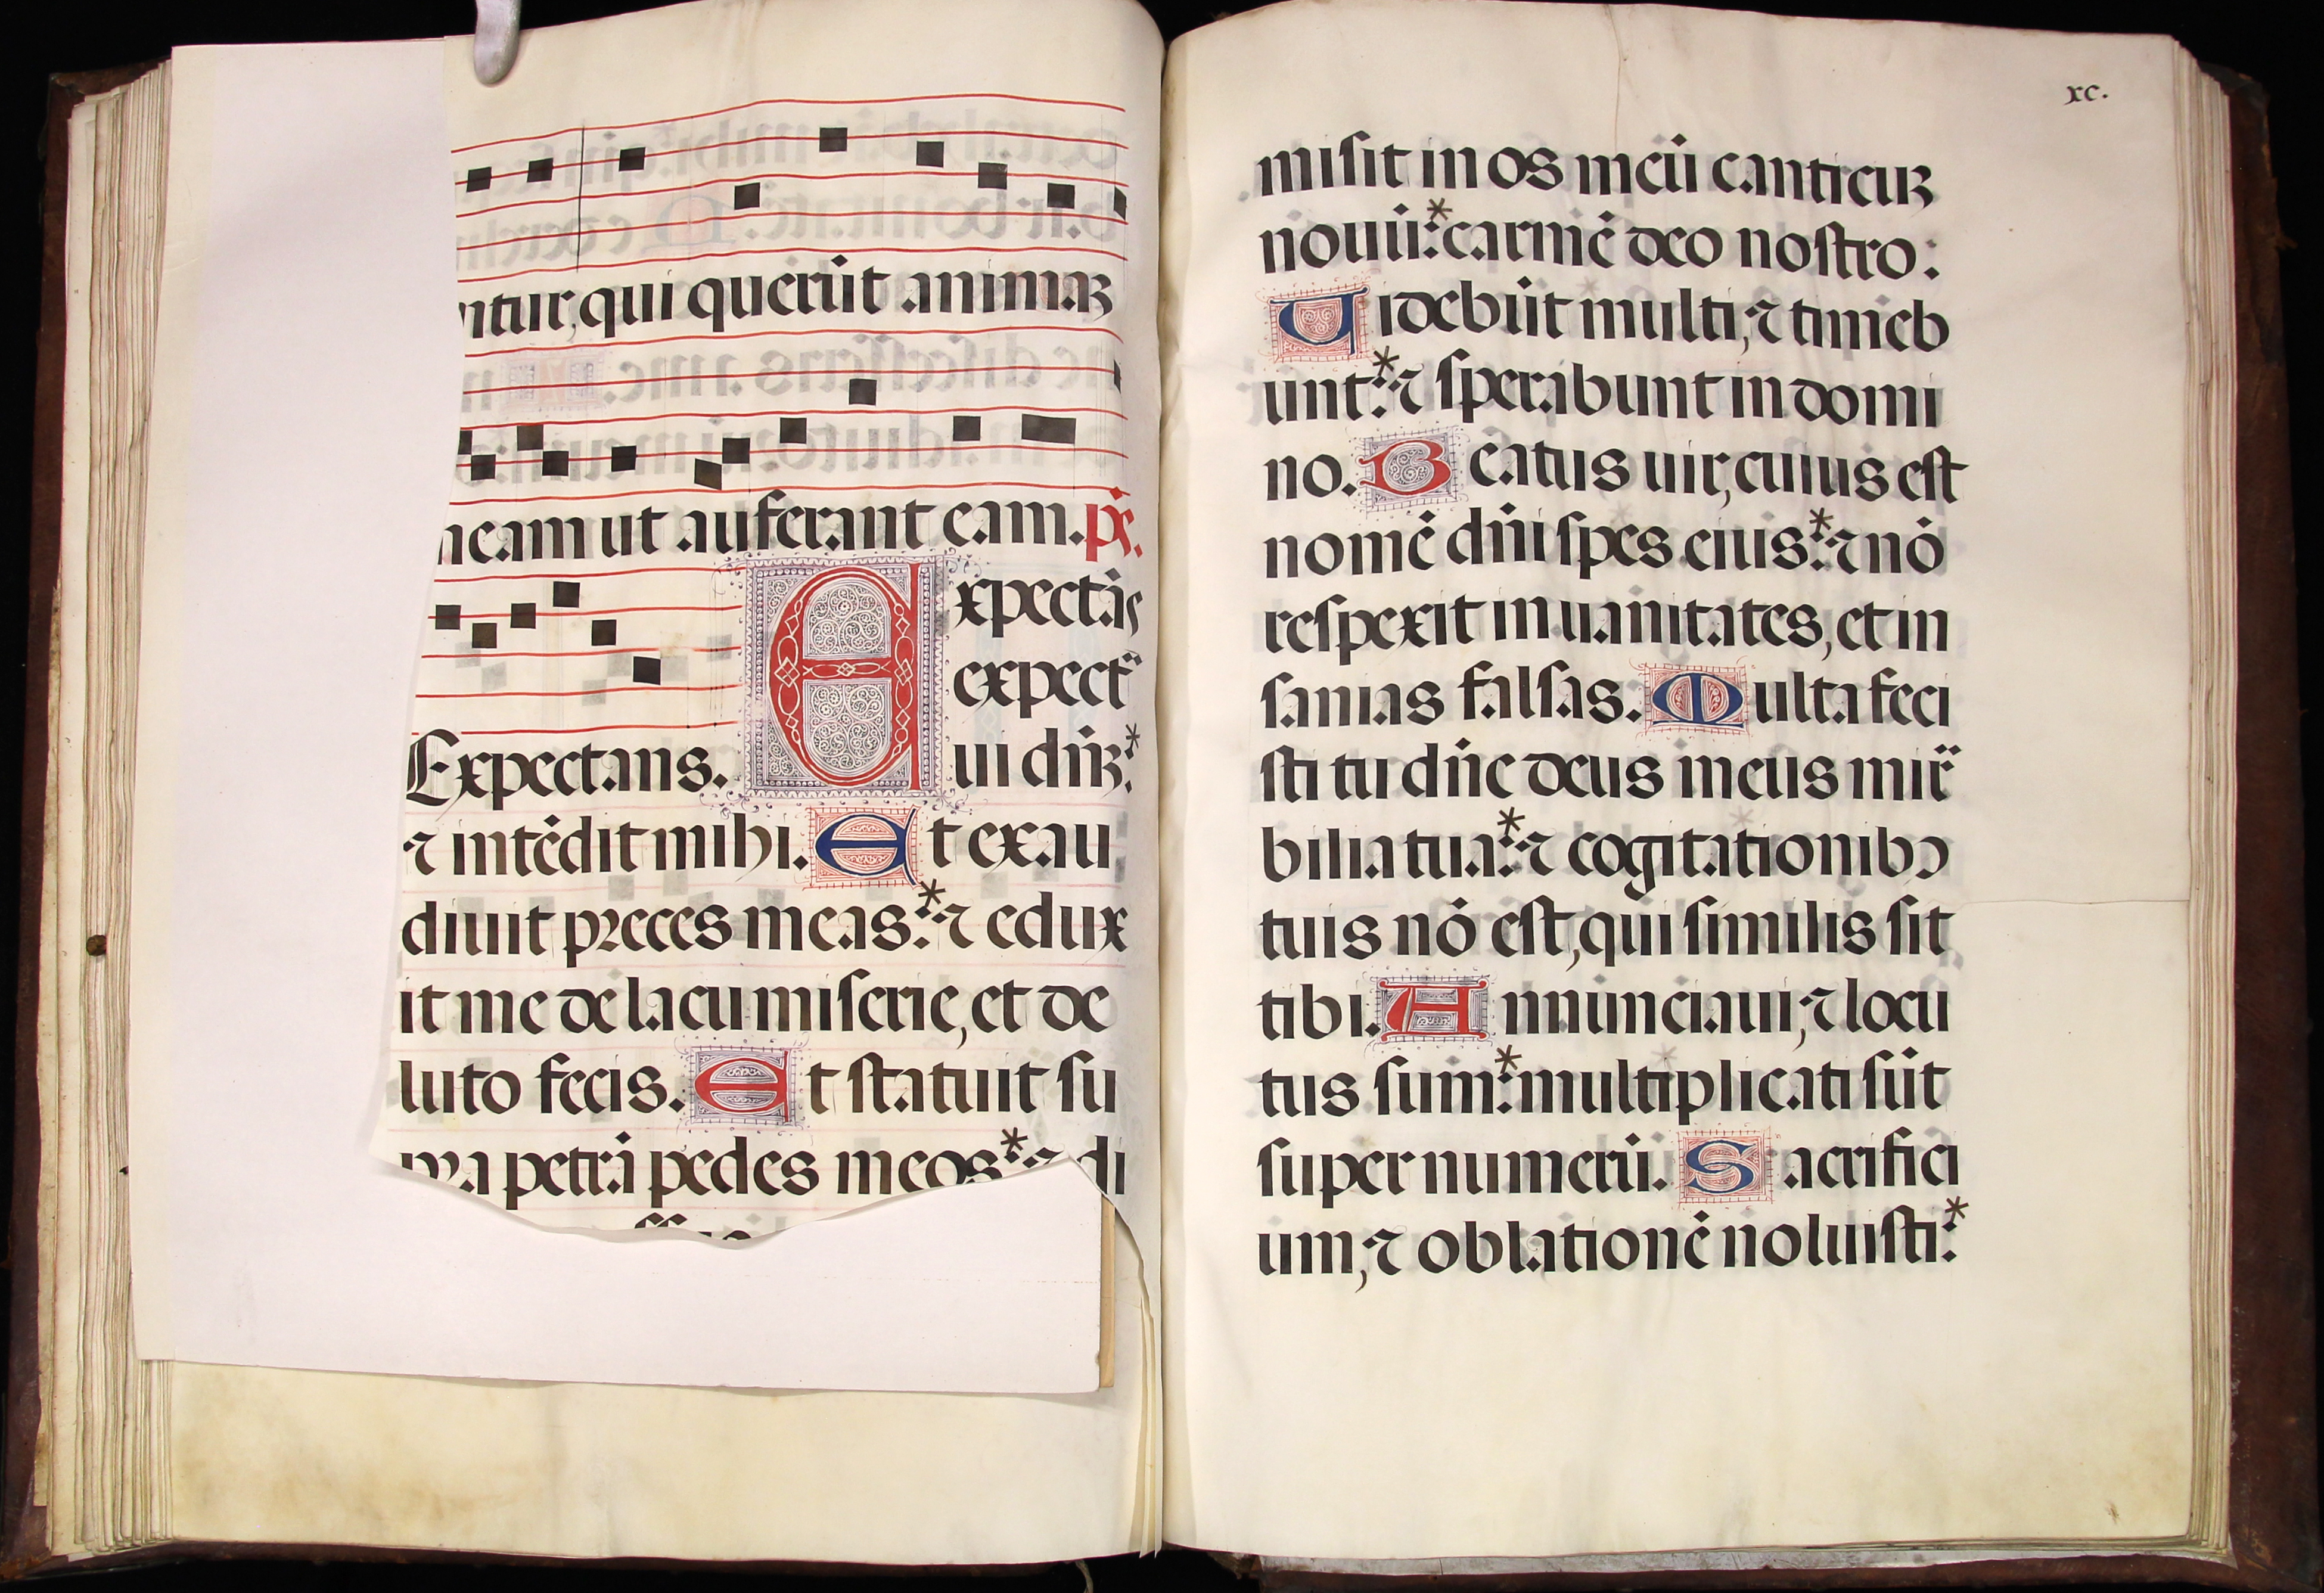 ntur, qui querūt animaꝫ
meam ut auferant eam. ps.
Expectans.
Expectās
expecta
ui dn̄ꝫ:*
⁊ intēdit mihi. Et exau
diuit preces meas:* ⁊ edux
it me de lacu miserie, et de
luto fecis. Et statuit su
pra petrā pedes meos:* ⁊ di
xc.
misit in os meū canticuꝫ
nouū:* carmē deo nostro:
Uidebūt multi, ⁊ timeb
unt:* ⁊ sperabunt in domi
no. Beatus uir, cuius est
nomē dn̄i spes eius:* ⁊ nō
respexit in uanitates, et in
sanias falsas. Multa feci
sti tu dn̄e deus meus mira
bilia tua:* ⁊ cogitationibꝰ
tuis nō est, qui similis sit
tibi. Annunciaui, ⁊ locu
tus sum:* multiplicati sūt
super numerū. Sacrifici
um, ⁊ oblationē noluisti:*